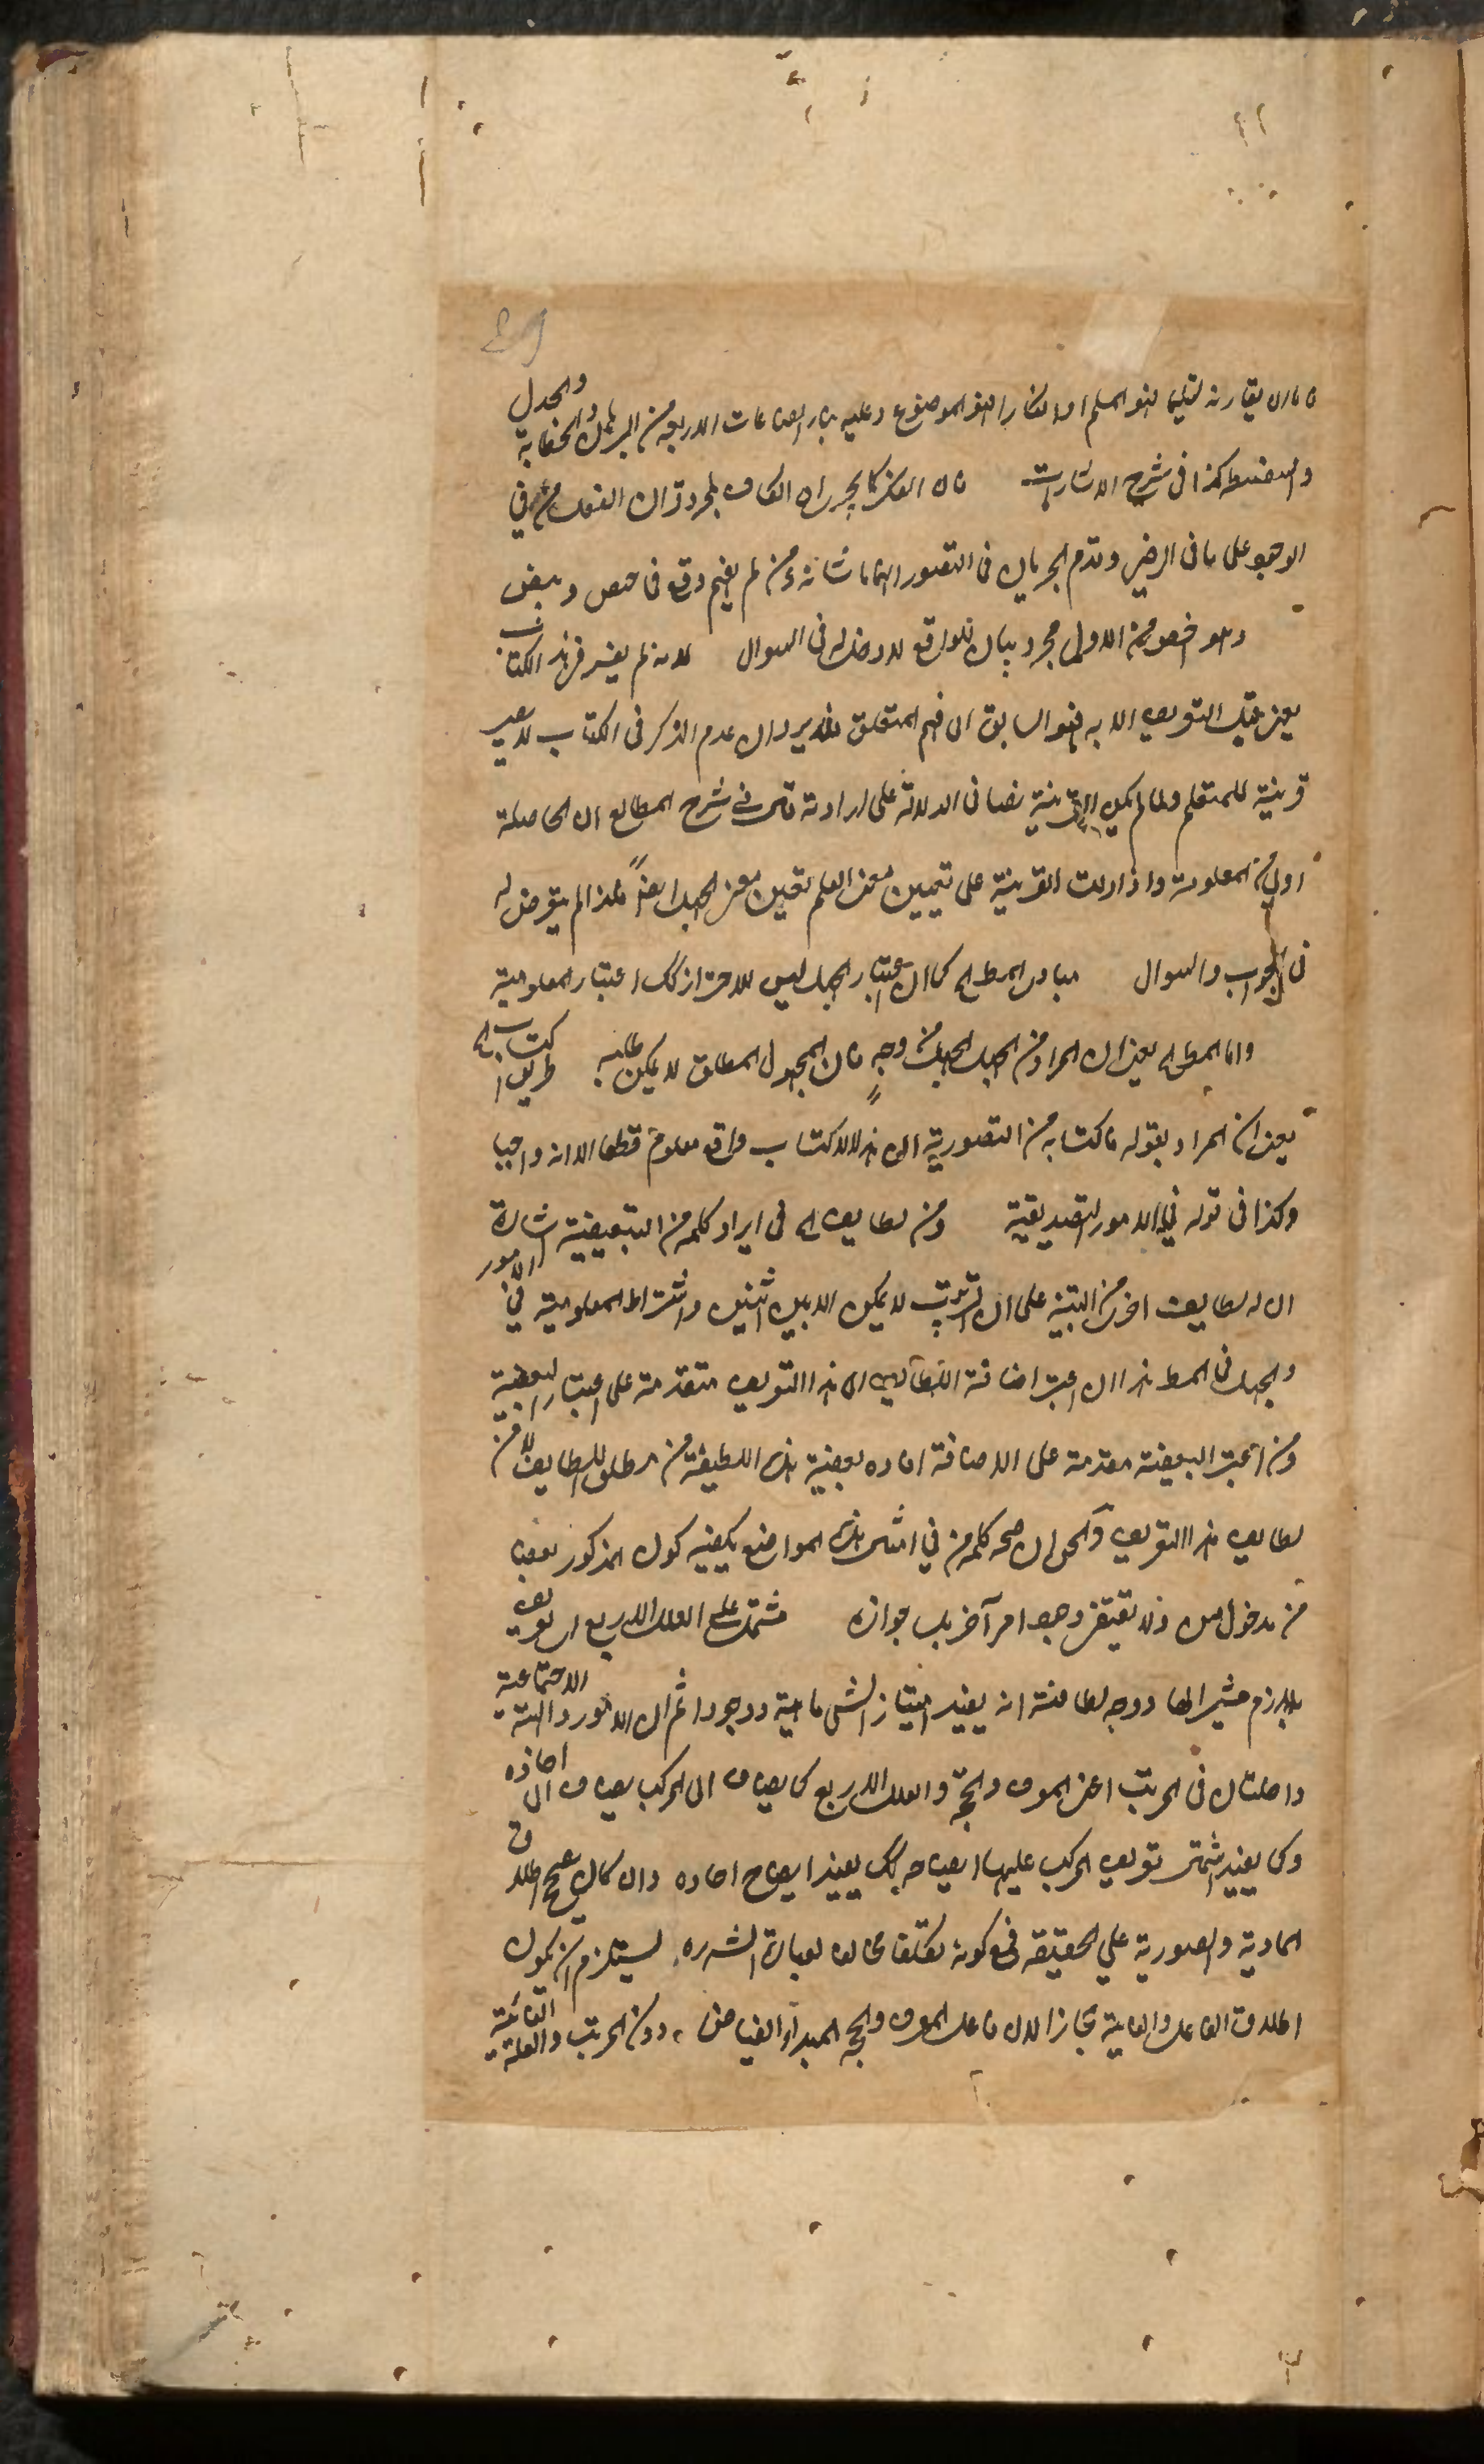 ٤٩
فان يقارنه تسليما فهو المسلم او انكارا فهو الموضوع وعليه بناء الصناعات الاربعة من البرهان والجدل والخطابة
والسفسطة كذا فى شرح الاشارات فان الفكر كما يجرى اه الكاف لمجرد قران الفعلين فى
الوجود على ما فى الرضى وقدم الجريان فى التصور اهتماما بشانه ومن لم يفهم وقع فى حيص وبيص
وهو خصوصية الاول مجرد بيان للواقع لا دخل له فى السوال لانه لم يفسر فى هذا الكتاب
يعنى قبل التعريف الا به فهو السابق الى فهم المتعلم فلا يرد ان عدم الذكر فى الكتاب لا يصير
قرينة للمتعلم ولما لم يكن القرينة نصا فى الدلالة على ارادته قال فى شرح المطالع ان الحاصلة
اولى من المعلومة واذا دلت القرينة على تعيين معنى العلم تعين معنى الجهل ايضا فلذا لم يتعرض له
فى الجواب والسوال مبادى المطلوب كما ان اعتبار الجهل ليس للاحتراز كذلك اعتبار المعلومية
واما المطلوب يعنى ان المراد من الجهل الجهل من وجه فان المجهول المطلق لا يمكن طلبه طريق اكتسابه
يعنى ان المراد بقوله فاكتسابه من التصورية ان هذا الاكتساب واقع معلوم قطعا لا انه واجبا
وكذا فى قوله فى الامور التصديقية ومن لطايف اه فى ايراد كلمة من التبعيضية اشارة
الى ان له لطايف اخرى من التنبيه على ان الترتيب لا يمكن الا بين اثنين واشتراط المعلومية فى الامور
والجهل فى المطلوب هذا ان اعتبر اضافة اللطايف الى هذا التعريف متقدمة على اعتبار البعضية
ومن اعتبر البعضية مقدمة على الاضافة افاده بعضية هذه اللطيفة من مطلق اللطايف لا من
لطايف هذا التعريف والحق ان صحة كلمة من فى امثال هذه المواضع يكفيه كون المذكور بعضا
من مدخول من ولا يقتضى وجود امر آخر بل جوازه مشتمل على العلل الاربع اى تعريف
باللازم مشير اليها ووجه لطافته انه يفيد امتياز الشى ماهية ووجودا ثم ان الامور والهيئة الاجتماعية
داخلتان فى المرتب اعنى المعرف والحجة والعلل الاربع كما يضاف الى المركب يضاف الى اجزاءه
وكما يفيد اشتمال تعريف المركب عليها ايضاحه كذلك يفيد ايضاح اجزاءه وان كان يصح اطلاق
المادية والصورية على الحقيقة فمع كونه تكلفا مخالف لعبارة الشرح يستلزم ان يكون
اطلاق الفاعل والغاية مجازا لان فاعل المعرف والحجة المبدأ الفياض دون المرتب والعلة الغائية